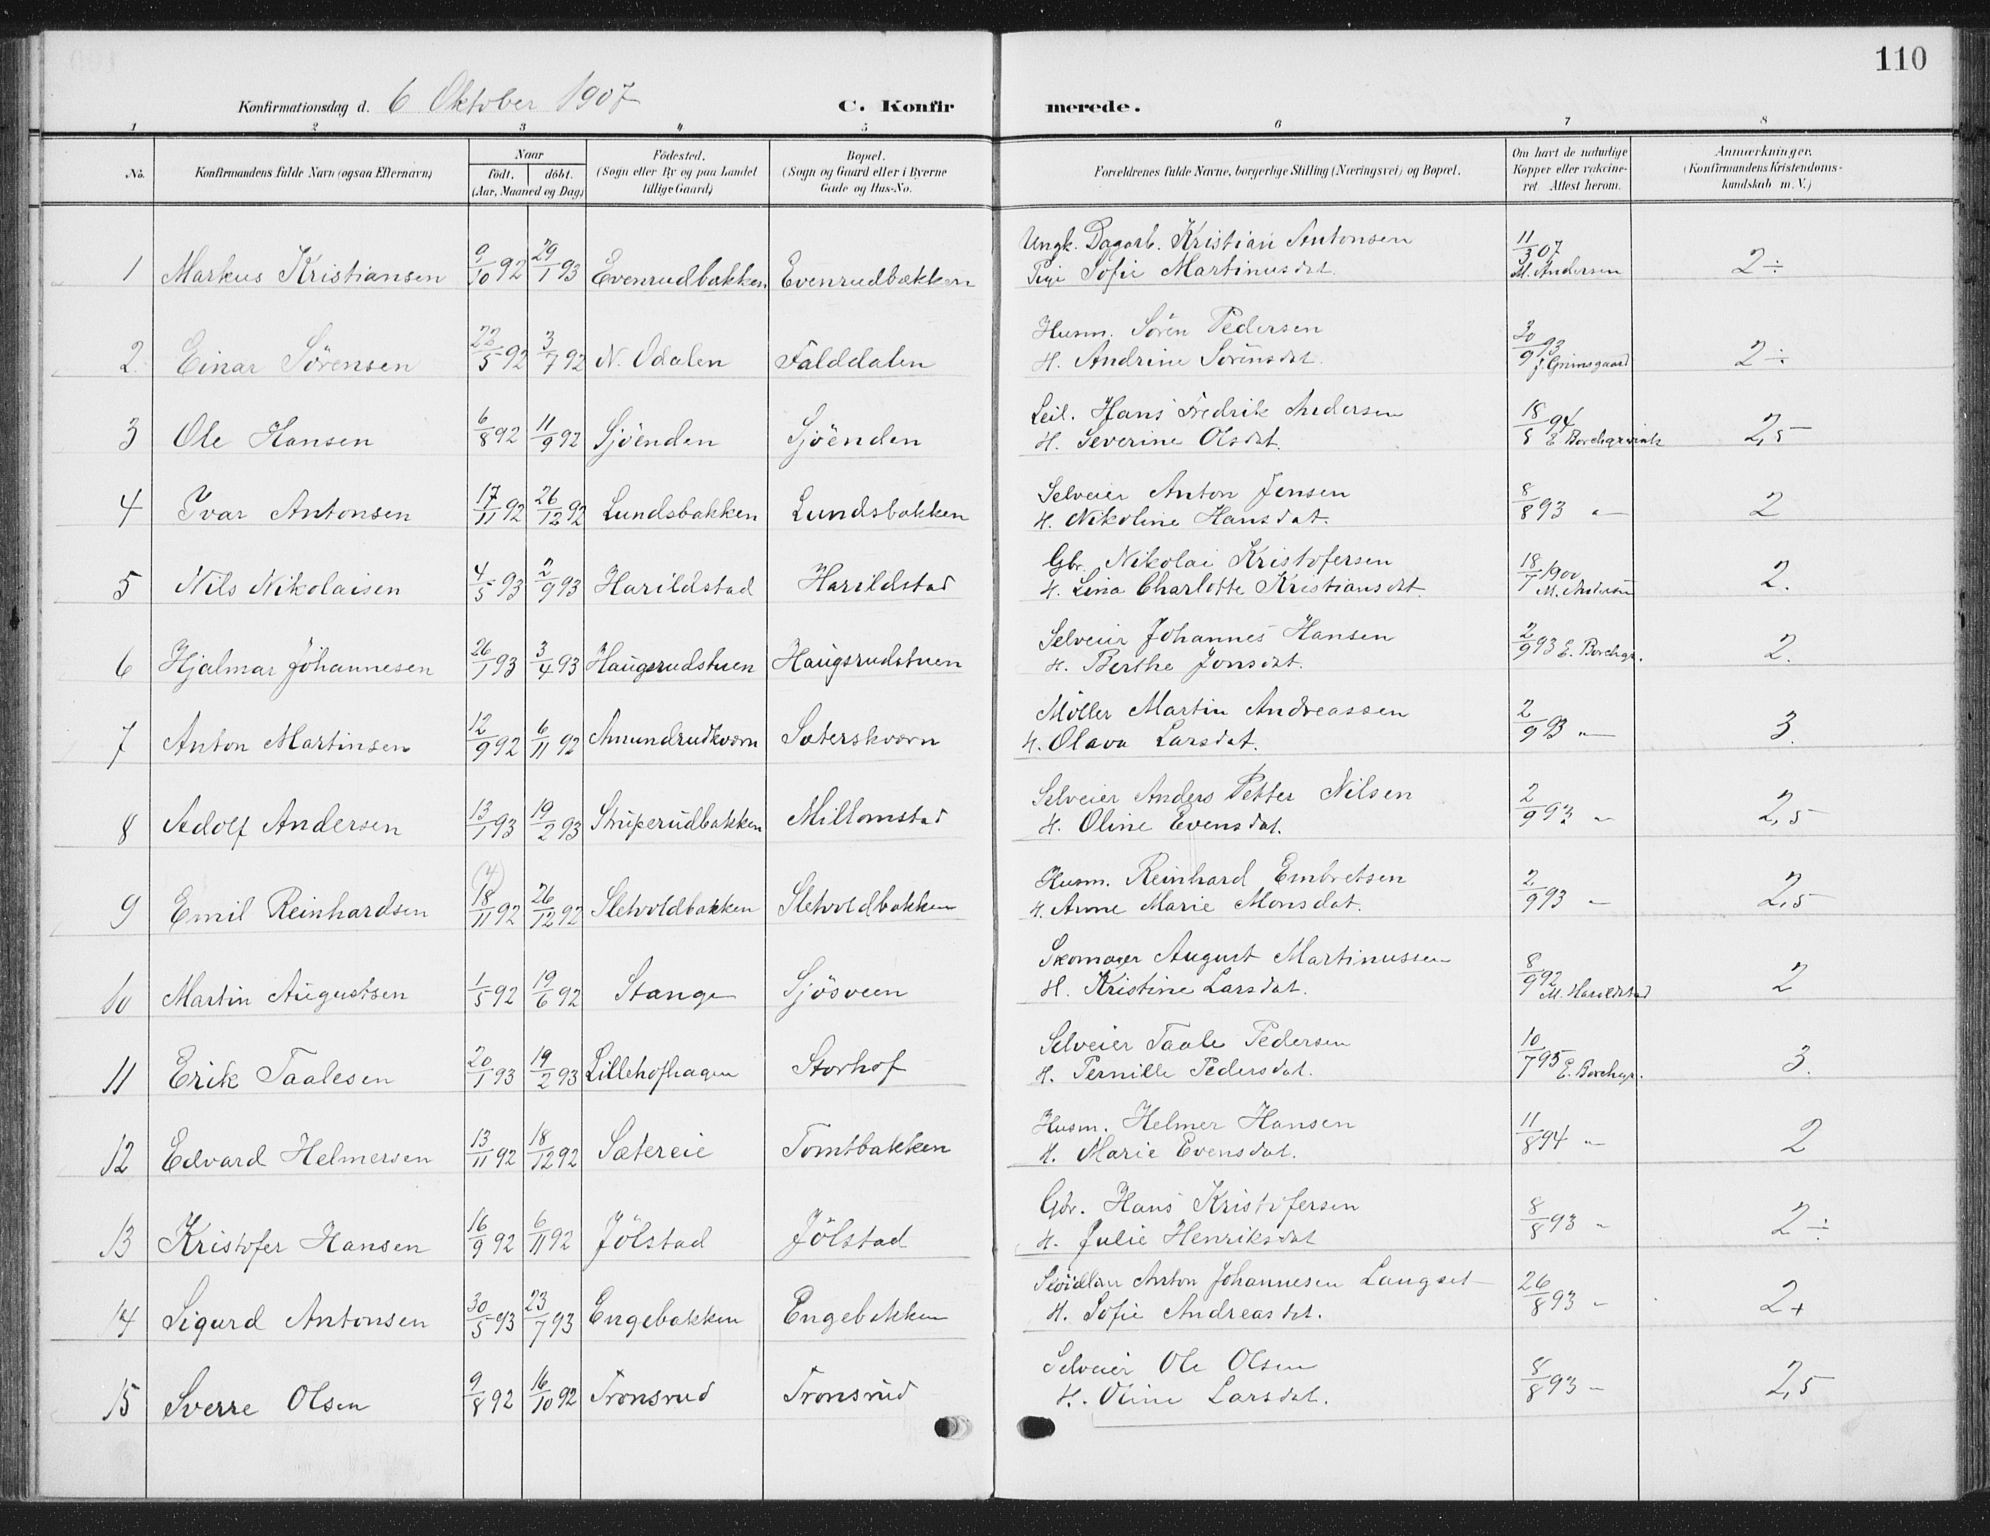 110
Konfirmationsdag d. 6 Oktober 1907 C. Konfirmerede.
1 2 3 4 5 6 7 8
No. Konfirmandens fulde Navn (ogsaa Efternavn) Naar födt. döbt. (Aar, Maaned og Dag) Födested. (Sogn eller By og paa Landet tillige Gaard) Bopæl. (Sogn og Gaard eller i Byerne Gade og Hus-No. Forældrenes fulde Navne, borgerlige Stilling (Næringsvei) og Bopæl. Om havt de naturlige Kopper eller vaccineret. Attest herom. Anmærkninger. (Konfirmandens Kristendomskundskab m. V.)
1 Markus Kristiansen 9/10 92 29/1 93 Evenrudbakken Evenrudbakken Ungk. Dagarb. Kristian Antonsen 11/3 07 M. Andersen 2÷
Pige Sofie Martinusdat.
2. Einar Sörensen 22/5 92 3/7 92 N. Odalen Falddalen Husm. Sören Pedersen 30/9 93 J. Grimsgaard 2÷
H. Andrine Sörensdat.
3 Ole Hansen 6/8 92 11/9 92 Sjöenden Sjöenden Leil. Hans Fredrik Andersen 18/8 94 E. Borchgrevink 2,5
H. Severine Olsdat.
4 Ivar Antonsen 17/11 92 26/12 92 Lundsbakken Lundsbakken Selveier Anton Jensen 8/8 93 " 2
H. Nikoline Hansdat.
5 Nils Nikolaisen 4/5 93 2/9 93 Harildstad Harildstad Gbr. Nikolai Kristofersen 18/7 1900 M. Andersen 2.
H. Lina Charlotte Kristiansdat.
6 Hjalmar Johannesen 26/1 93 3/4 93 Haugsrudstuen Haugsrudstuen Selveier Johannes Hansen 2/9 93 E. Borchgr. 2.
H. Berthe Jonsdat.
7 Anton Martinsen 12/9 92 6/11 92 Amundrudkværn Sæterskværn Möller Martin Andreassen 2/9 93 " 3.
H. Olava Larsdat.
8 Adolf Andersen 13/1 93 19/2 93 Struperudbakken Millomstad Selveier Anders Petter Nilsen 2/9 93 " 2,5
H. Oline Evensdat.
9 Emil Reinhardsen (4) 18/11 92 26/12 92 Sletvoldbakken Sletvoldbakken Husm. Reinhard Embretsen 2/9 93 " 2,5
H. Anne Marie Monsdat.
10 Martin Augustsen 1/5 92 19/6 92 Stange Sjösveen Skomager August Martinussen 8/9 92 M. Haroldstad 2
H. Kristine Larsdat.
11 Erik Taalesen 20/1 93 19/2 93 Lillehofhagen Storhof Selveier Taale Pedersen 10/7 95 E. Borchgr. 3.
H. Pernille Pedersdat.
12 Edvard Helmersen 13/11 92 18/12 92 Sætereie Tomtbakken Husm. Helmer Hansen 11/8 94 " 2
H. Marie Evensdat.
13 Kristofer Hansen 16/9 92 6/11 92 Jölstad Jölstad Gbr. Hans Kristofersen 8/8 93 " 2÷
H. Julie Henriksdat
14 Sigurd Antonsen 30/5 93 23/7 93 Engebakken Engebakken Anton Johannesen Langset 26/8 93 " 2+
H. Sofie Andreasdat.
15 Sverre Olsen 9/8 92 16/10 92 Tronsrud Tronsrud Selveier Ole Olsen 8/8 93 " 2,5
H. Oline Larsdat.